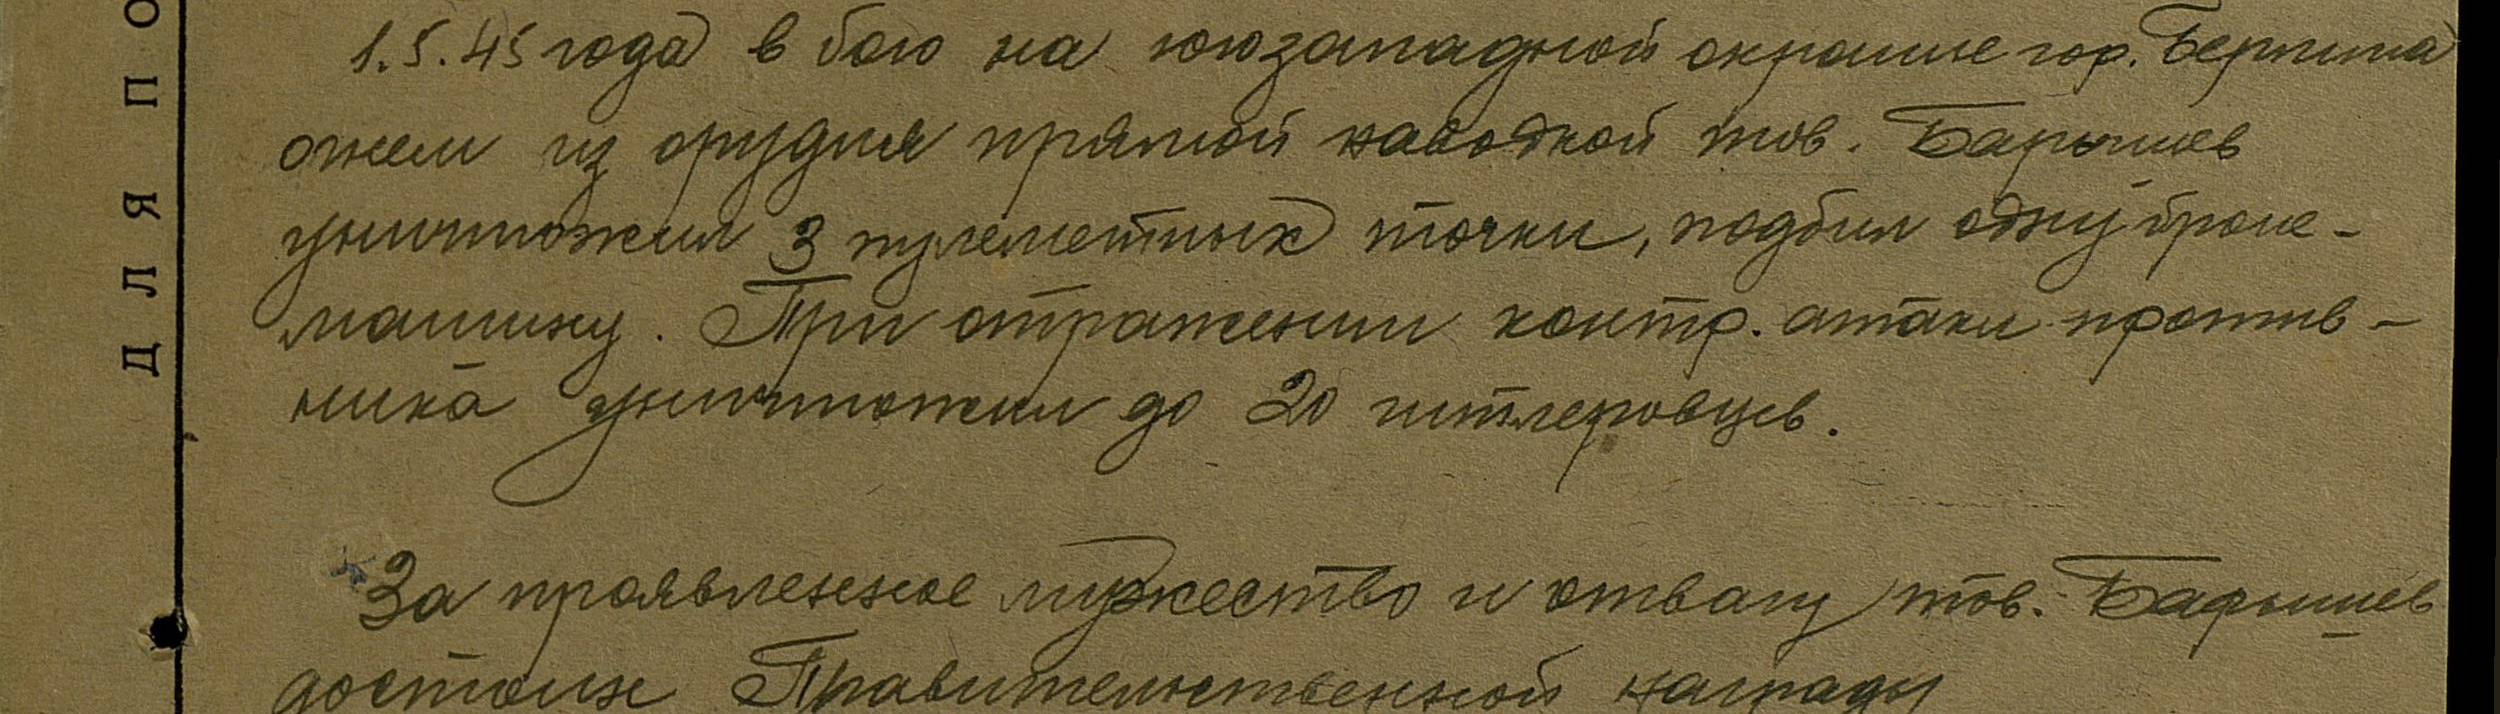 1.5.45 года в бою на югозападной окраине гор. Берлина
огнем из орудия прямой наводкой тов. Барышев
уничтожил 3 пулеметных точки, подбил одну броне-
машину. При отражении контр. атаки против-
ника уничтожил до 20 гитлеровцев.
За проявленное мужество и отвагу тов. Барышев
достоин Правительственной награды
ДЛЯ ПО